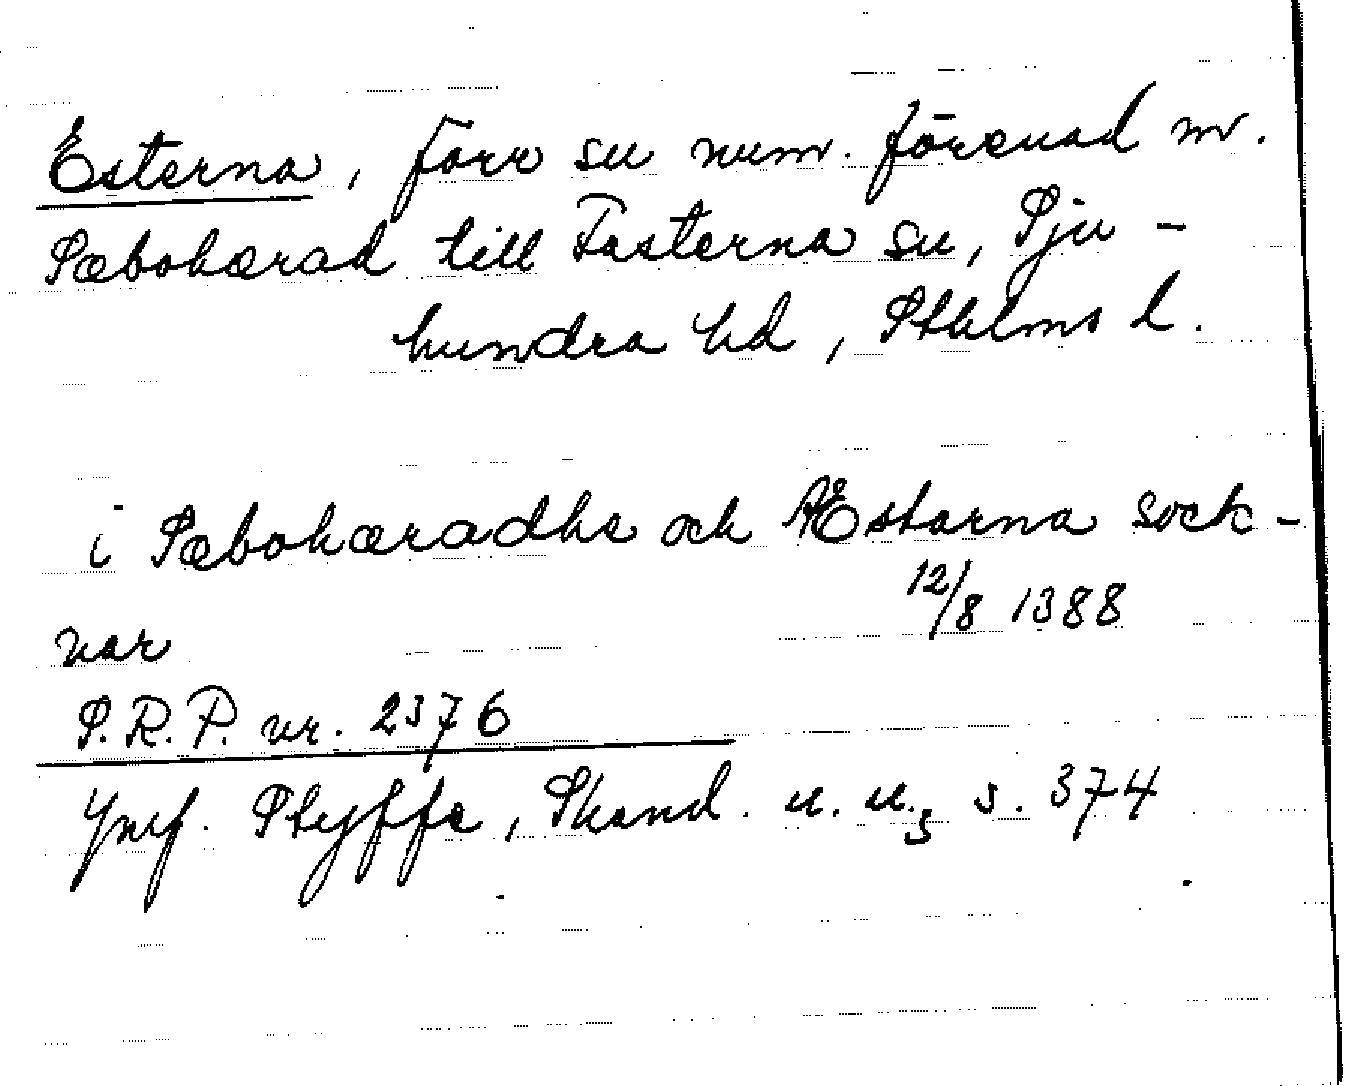 Esterna, förr sn num. förenad m.
Sæbohærad till Fasterna sn, Sju-
hundra hd, Sthlms l.
i Sæbohæradhe och Æstarna sock-
nar 12/8 1388
S.R.P. nr. 2376
Jmf. Styffe, Skand. u. u.3 s. 374